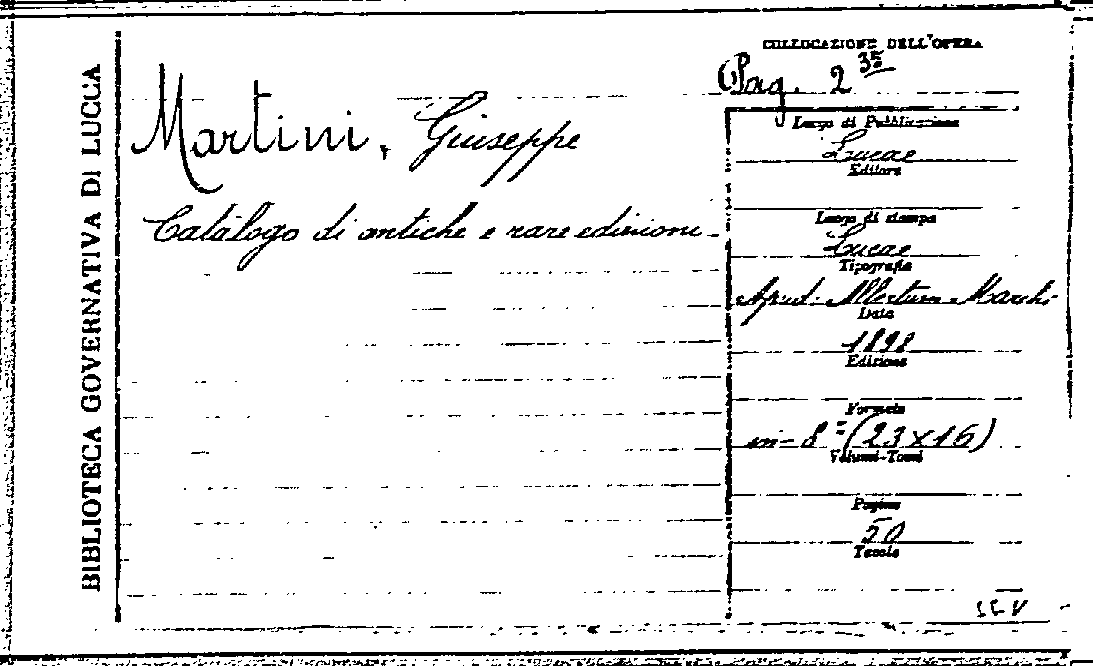 BIBLIOTECA GOVERNATIVA DI LUCCA
Martini, Giuseppe
Catalogo di antiche e rare edizioni -
COLLOCAZIONE DELL'OPERA
Pag. 2 35
Luogo di Pubblicazione
Lucae
Editore
Luogo di stampa
Lucae
Tipografia
Apud. Albertum Marchi
Data
1898
Edizione
Formato
in-8º (23x16)
Volumi-Tomi
Pagine
50
Tavole